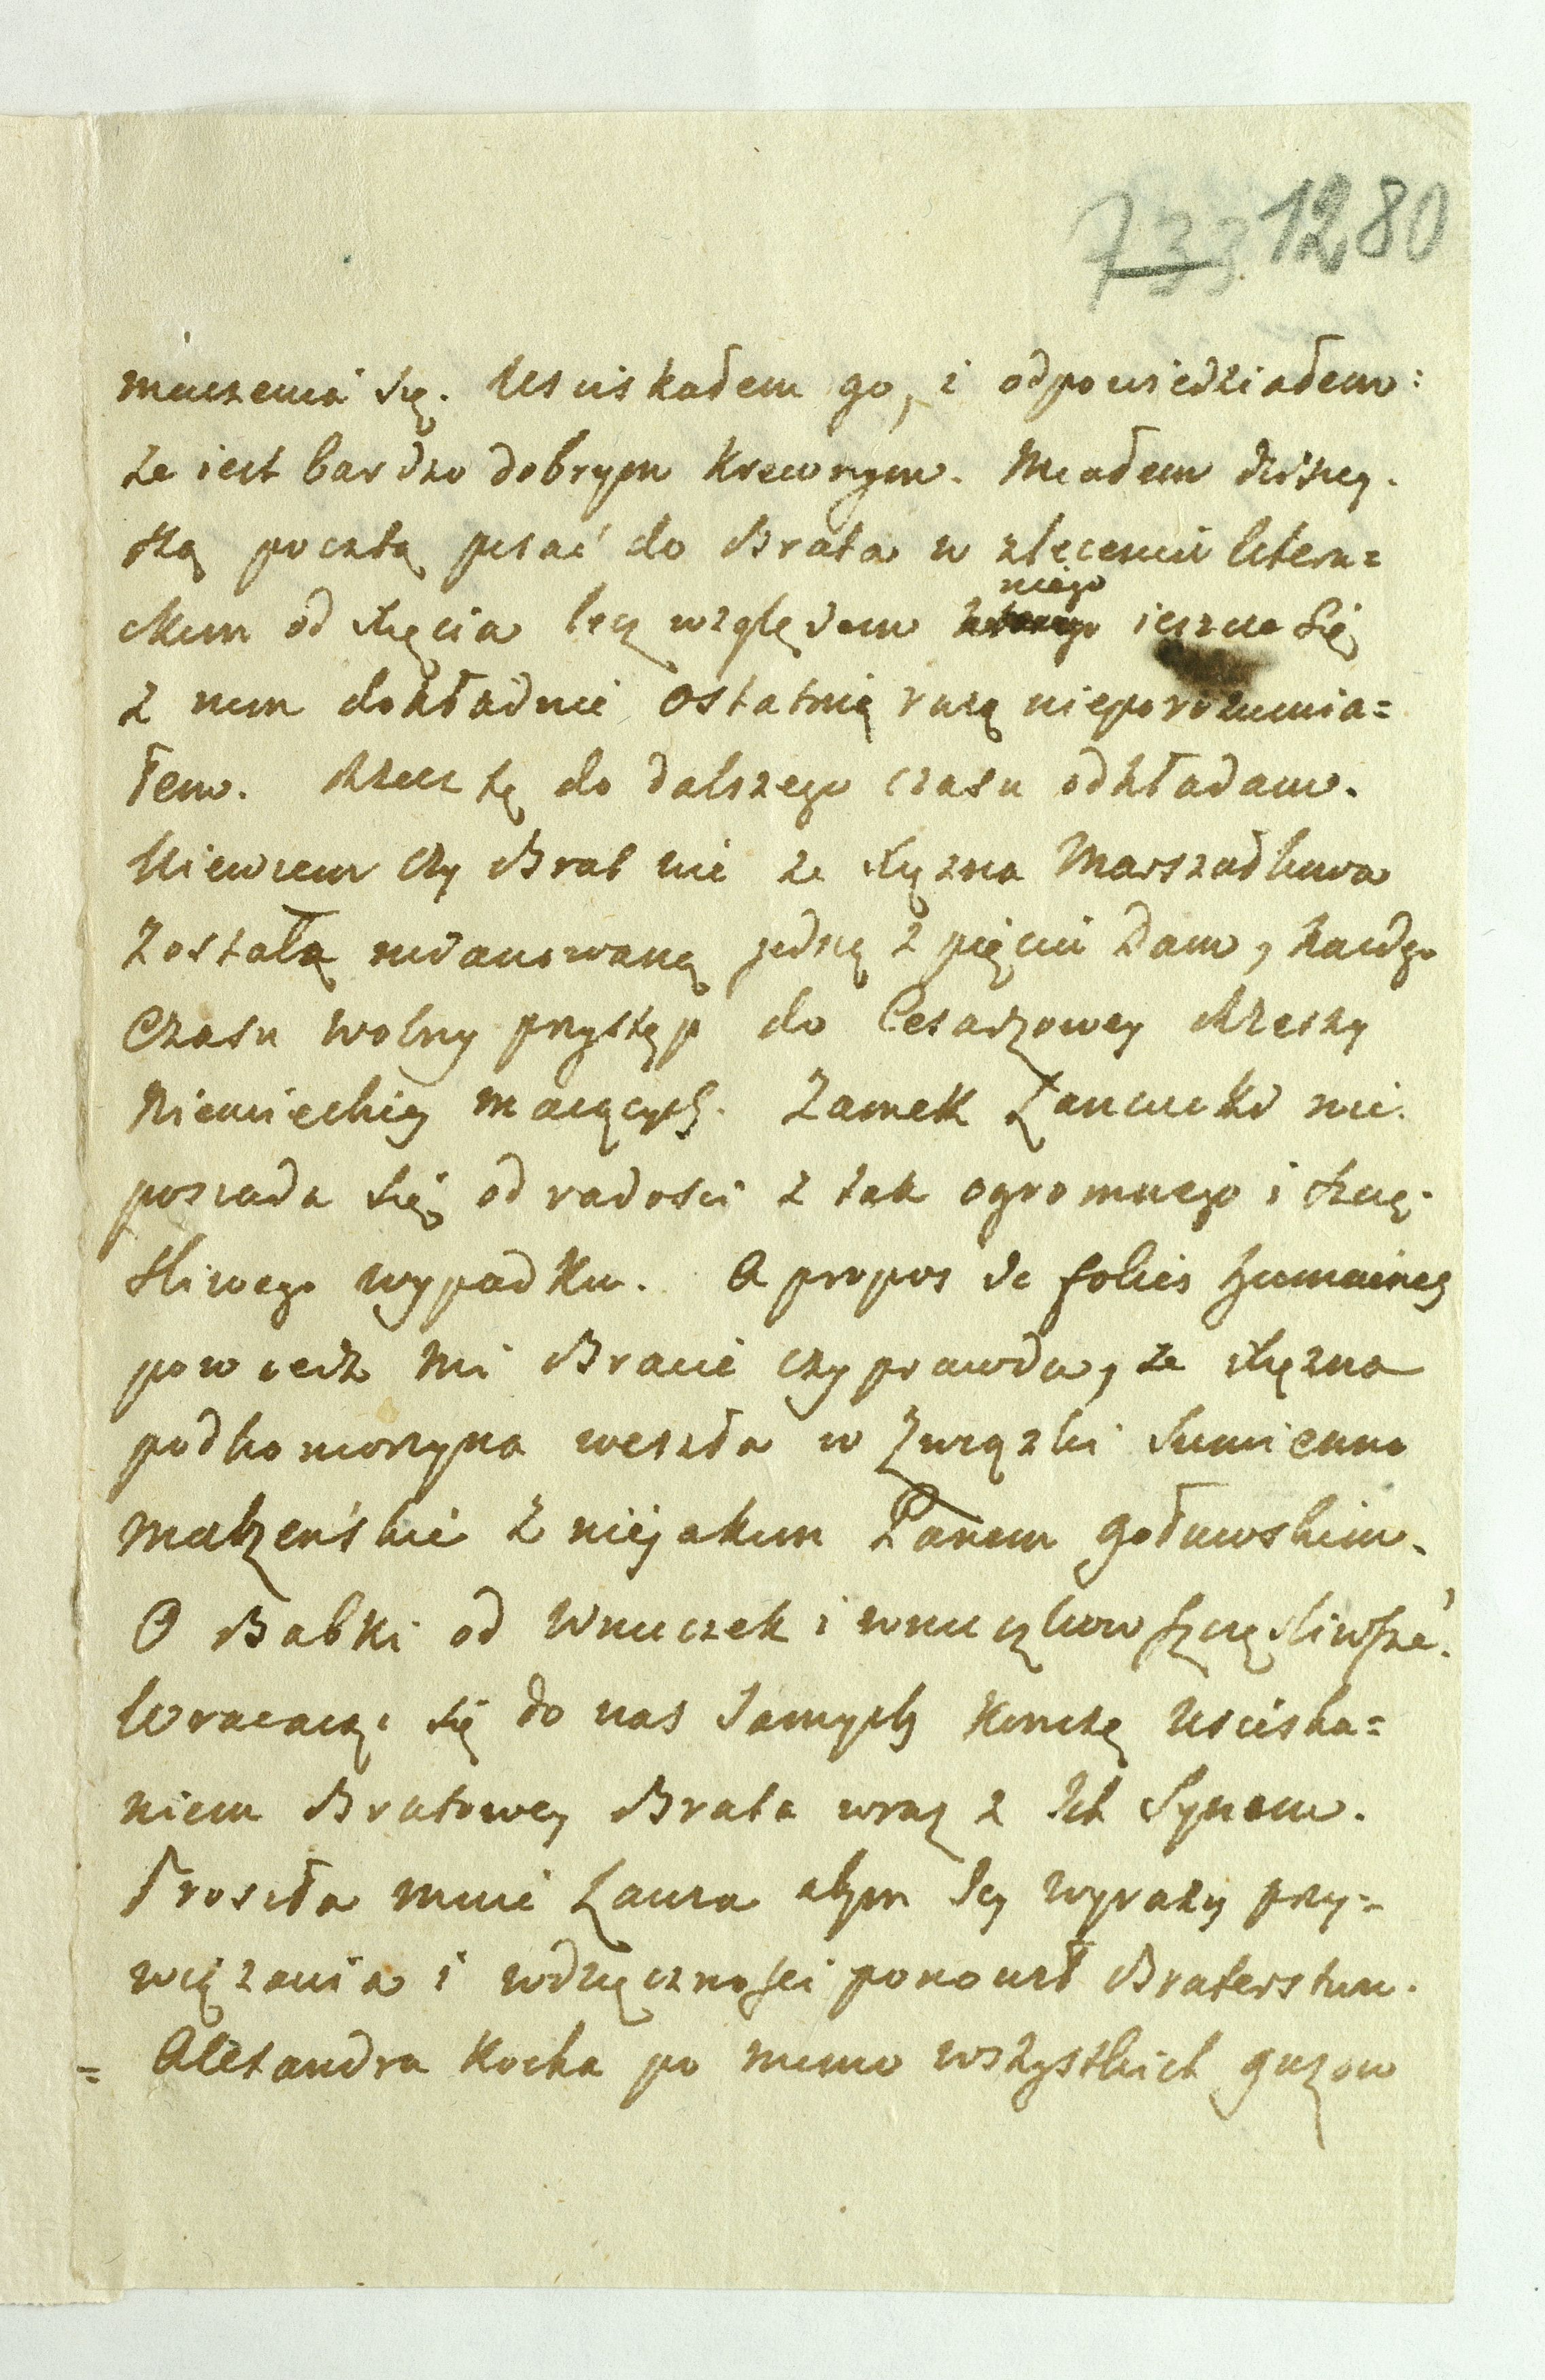 733 1280
maczenia się. Usciskałem go, i odpowiedziałem:
że iest bardzo dobrym krewnym. Miałem dzisiey-
szą pocztą pisać do Brata w zleceniu litera=
ckim od Xięcia lecz względem niego ieszcze się
z nim dokładnie ostatnią razą nieporozumia=
łem. Rzecz tę do dalszego czasu odkładam.
Niewiem czy Brat wie że Xiężna Marszałkowa
Została mianowaną jedną z pięciu Dam, każdego
Czasu wolny przystęp do Cesarzowey Rzeszy
Niemieckiey maiących. Zamek Łancucki nie
posiada się od radości z tak ogromnego i szczę-
śliwego wypadku. A propos de folies humaines
powiedz mi Bracie czy prawda, że Xiężna
podkomorzyna weszła w Związki sumienno
małżeńskie z niejakim Panem gołuwskim.
O Babki od Wnuczek i wnuczkow szczęśliwsze!
Wracaiąc się do nas samych kończę usciska=
niem Bratowey Brata wraz z Ich Synem.
Prosiła mnie Laura abym Jey wyrazy przy=
wiązania i wdzięczności ponowił Braterstwu.
= Alexandra Kocha po mimo wszystkich guzow